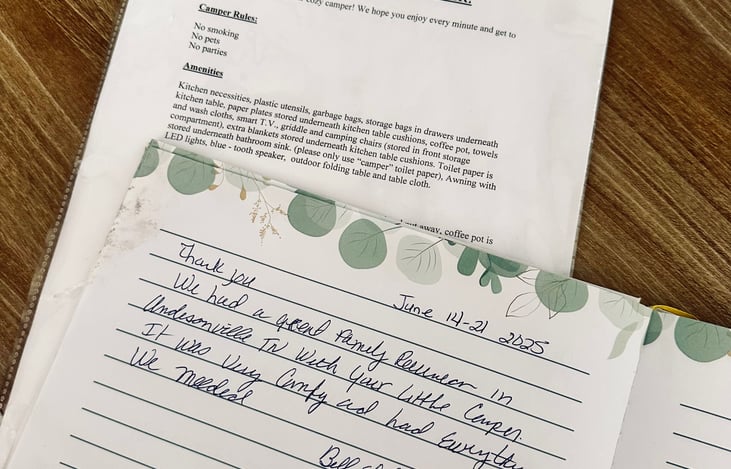 cozy camper! We hope you enjoy every minute and get to
Camper Rules:
No smoking
No pets
No parties
Amenities
Kitchen necessities, plastic utensils, garbage bags, storage bags in drawers underneath
kitchen table, paper plates stored underneath kitchen table cushions, coffee pot, towels
and wash cloths, smart T.V., griddle and camping chairs (stored in front storage
compartment), extra blankets stored underneath kitchen table cushions. Toilet paper is
stored underneath bathroom sink. (please only use "camper" toilet paper), Awning with
LED lights, blue - tooth speaker, outdoor folding table and table cloth.
away, coffee pot is
Thank you
June 14-21 2025
We had a great Family Reunion in
Andersonville TN With your Little Camper.
It was Very Comfy and had Everything
We Needed